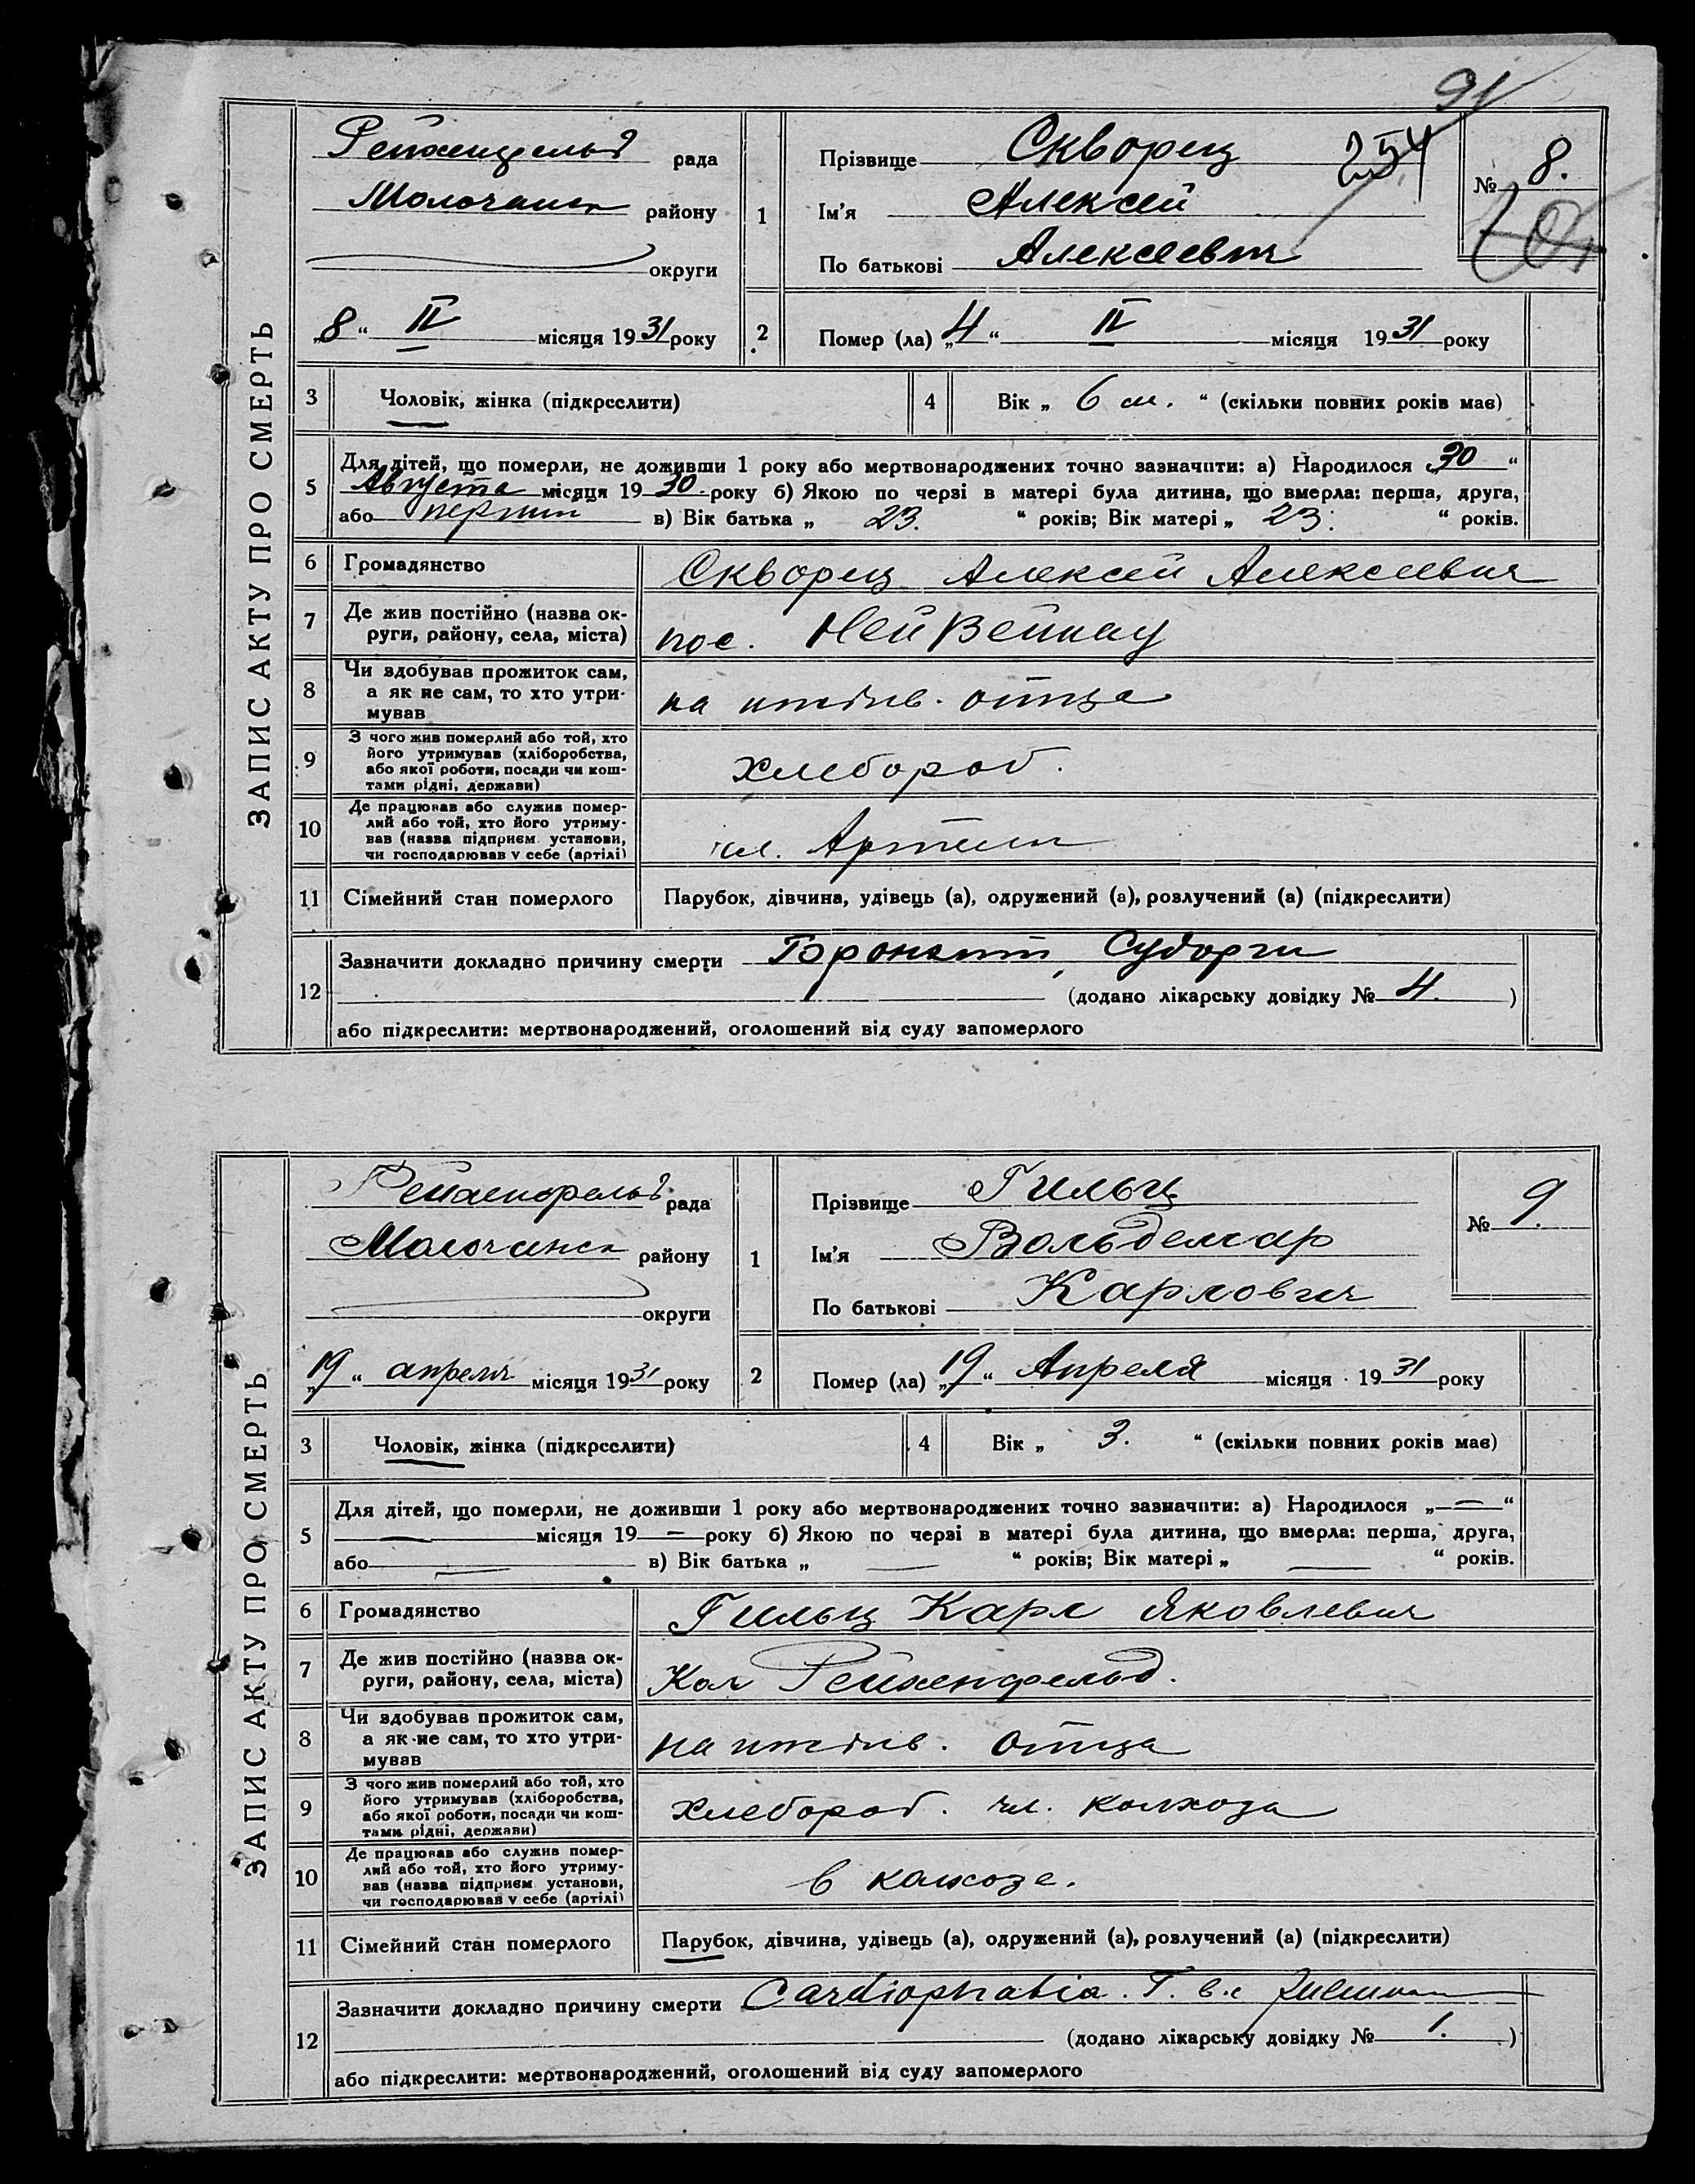 91
254
ЗАПИС АКТУ ПРО СМЕРТЬ
Рейхенфельд рада
Молочанск району
округи
„8“ IV місяця 1931 року
1 Прізвище Скворец
Ім'я Алексей
По батькові Алексеевич
№ 8.
2 Помер (ла) „4“ IV місяця 1931 року
3 Чоловік, жінка (підкреслити)
4 Вік „ 6 м. “ (скільки повних років має)
5 Для дітей, що померли, не доживши 1 року або мертвонароджених точно зазначити: а) Народилося „30“
Августа місяця 1930 року б) Якою по черзі в матері була дитина, що вмерла: перша, друга,
або первый в) Вік батька „ 23. “ років; Вік матері „ 23. “ років.
6 Громадянство Скворец Алексей Алексеевич
7 Де жив постійно (назва ок-
руги, району, села, міста) пос. НейВейнау
8 Чи здобував прожиток сам,
а як не сам, то хто утри-
мував на иждив. отца
9 З чого жив померлий або той, хто
його утримував (хліборобства,
або якої роботи, посади чи кош-
тами рідні, держави) хлебороб.
10 Де працював або служив помер-
лий або той, хто його утриму-
вав (назва підприєм. установи,
чи господарював у себе (артілі) чл. Артели
11 Сімейний стан померлого Парубок, дівчина, удівець (а), одружений (а), розлучений (а) (підкреслити)
12 Зазначити докладно причину смерти Бронхит, Судорги
(додано лікарську довідку № 4. )
або підкреслити: мертвонароджений, оголошений від суду запомерлого
ЗАПИС АКТУ ПРО СМЕРТЬ
Рейхенфельд рада
Молочанск району
округи
„19“ апреля місяця 1931 року
1 Прізвище Гильц
Ім'я Вольдемар
По батькові Карлович
№ 9.
2 Помер (ла) „19“ Апреля місяця 1931 року
3 Чоловік, жінка (підкреслити)
4 Вік „ 3. “ (скільки повних років має)
5 Для дітей, що померли, не доживши 1 року або мертвонароджених точно зазначити: а) Народилося „—“
— місяця 19 — року б) Якою по черзі в матері була дитина, що вмерла: перша, друга,
або — в) Вік батька „ — “ років; Вік матері „ — “ років.
6 Громадянство Гильц Карл Яковлевич
7 Де жив постійно (назва ок-
руги, району, села, міста) Кол Рейхенфельд.
8 Чи здобував прожиток сам,
а як не сам, то хто утри-
мував на иждив. отца
9 З чого жив померлий або той, хто
його утримував (хліборобства,
або якої роботи, посади чи кош-
тами рідні, держави) хлебороб. чл. колхоза
10 Де працював або служив помер-
лий або той, хто його утриму-
вав (назва підприєм. установи,
чи господарював у себе (артілі) в колхозе.
11 Сімейний стан померлого Парубок, дівчина, удівець (а), одружений (а), розлучений (а) (підкреслити)
12 Зазначити докладно причину смерти Cardiophatia.
(додано лікарську довідку № 1. )
або підкреслити: мертвонароджений, оголошений від суду запомерлого